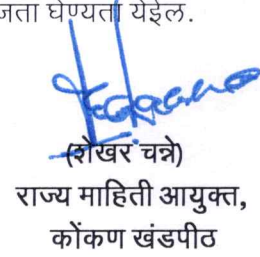 जता घेण्यता येईल.
(शेखर चन्ने)
राज्य माहिती आयुक्त,
कोंकण खंडपीठ